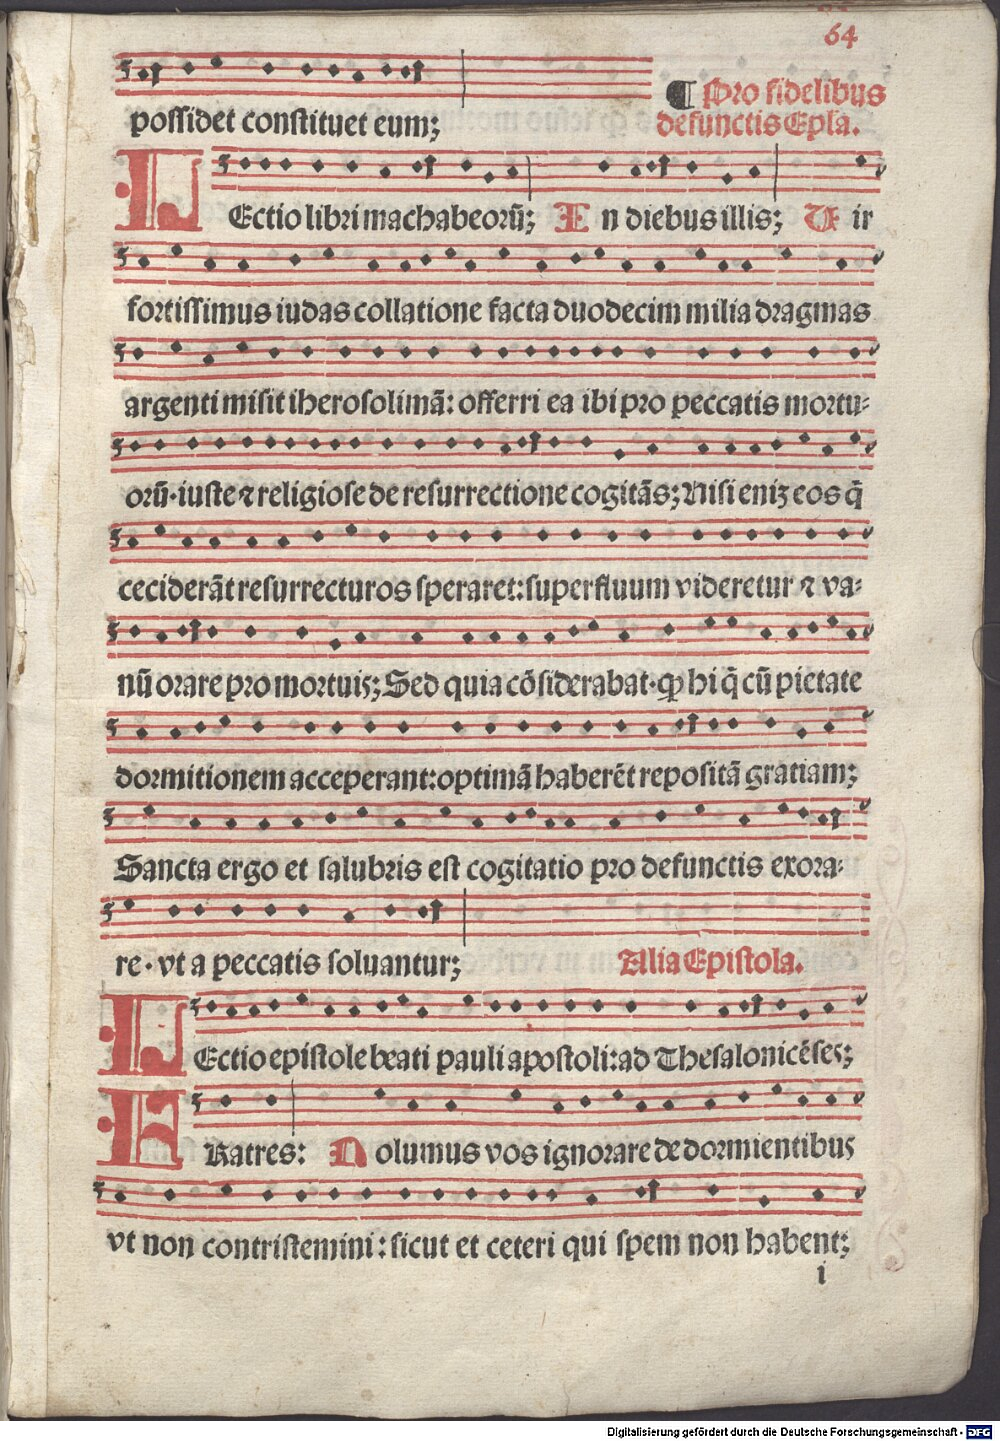 64
possidet constituet eum;
¶ Pro fidelibus
defunctis Epla.
LEctio libri machabeorū; In diebus illis; Vir
fortissimus iudas collatione facta duodecim milia dragmas
argenti misit iherosolimā: offerri ea ibi pro peccatis mortu-
orū·iuste ⁊ religiose de resurrectione cogitās; Nisi eniꝫ eos q̄
ceciderāt resurrecturos speraret: superfluum videretur ⁊ va-
nū orare pro mortuis; Sed quia cōsiderabat·ꝙ hi q̄ cū pietate
dormitionem acceperant: optimā haberēt repositā gratiam;
Sancta ergo et salubris est cogitatio pro defunctis exora-
re·vt a peccatis soluantur;
Alia Epistola.
LEctio epistole beati pauli apostoli: ad Thesalonicēses;
FRatres: Nolumus vos ignorare de dormientibus
vt non contristemini: sicut et ceteri qui spem non habent;
i
Digitalisierung gefördert durch die Deutsche Forschungsgemeinschaft - DFG